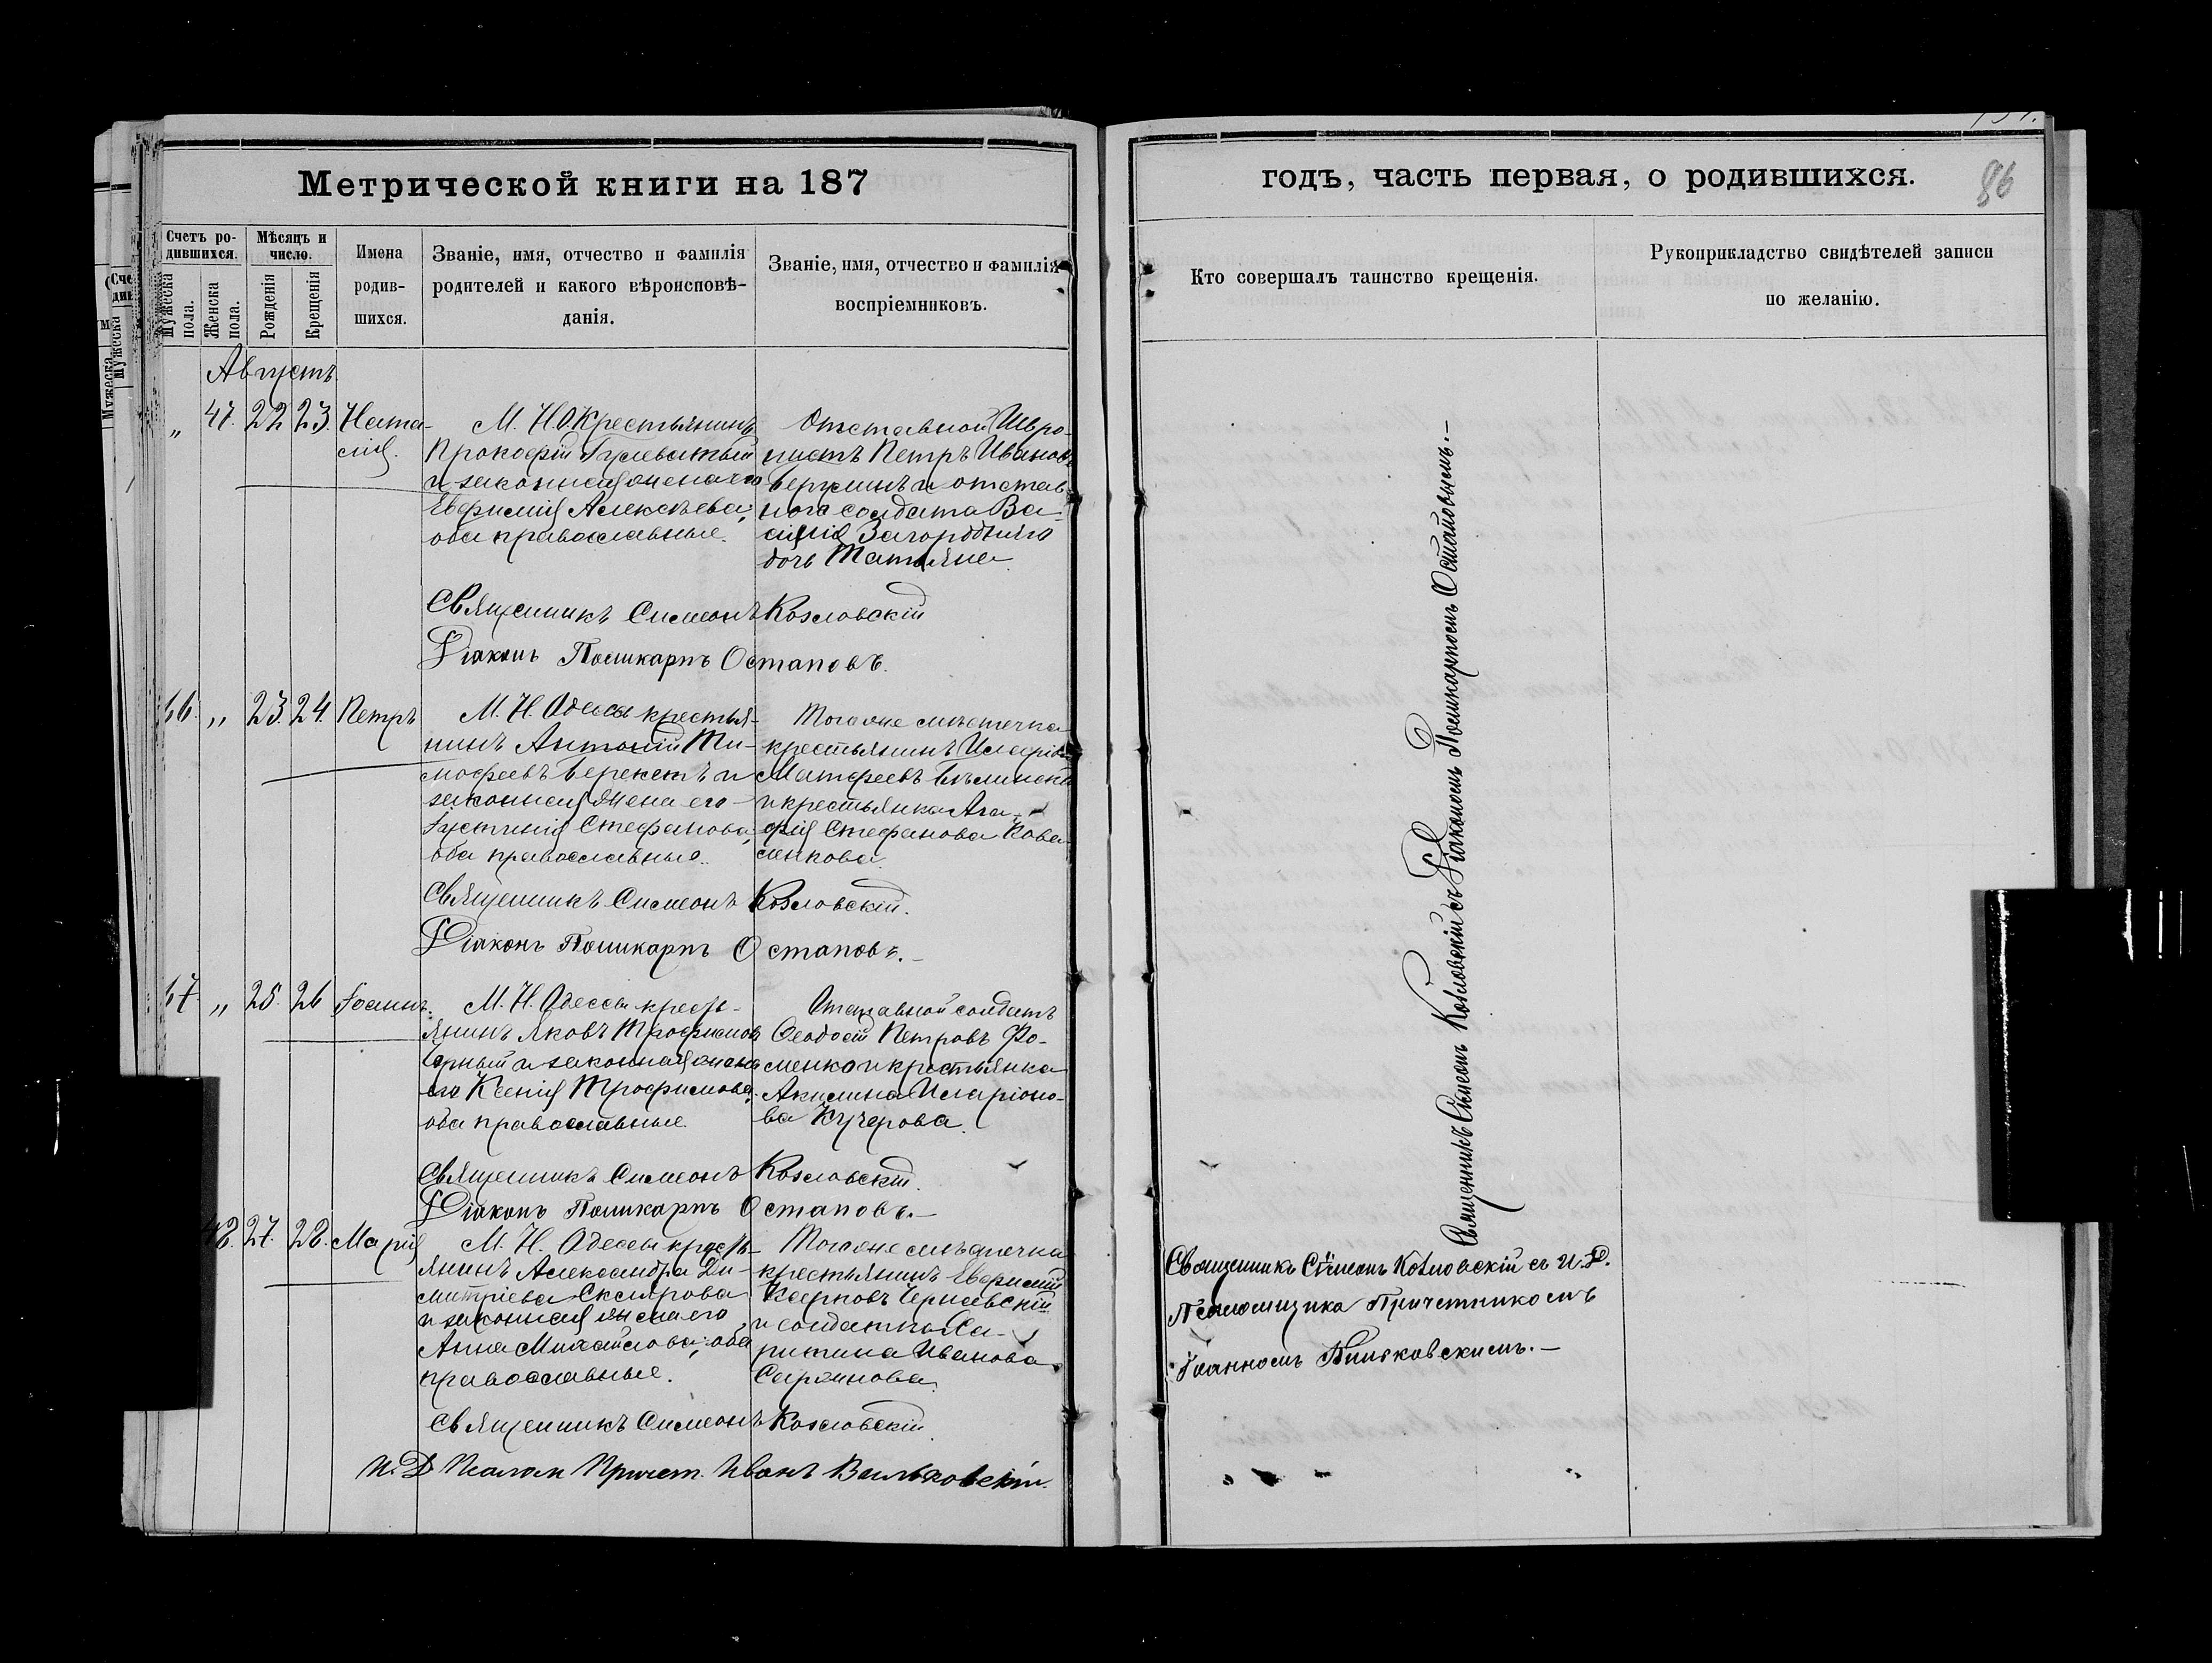 Метрической книги на 187
Счетъ ро-
дившихся.
Мужеска пола.
Женска пола.
Мѣсяцъ и
число.
Рожденія
Крещенія
Имена
родив-
шихся.
Званіе, имя, отчество и фамилія
родителей и какого вѣроисповѣ-
данія.
Званіе, имя, отчество и фамилія
воспріемниковъ.
Августъ
„ 47. 22 23. Ната-
лія.
М. Н. О Крестьянинъ
Прокофій
и законная жена его
Евфимія Алексѣева,
оба православные.
Отставной
Петръ Ивановъ
и отстав-
ного солдата Ва-
силія
дочь Татьяна
Священникъ Симеонъ Козловскій
Діаконъ Поликарпъ Остаповъ.
66. „ 23. 24. Петръ
М. Н. Одессы крестья-
нинъ Антоній Ти-
мофеевъ и
законная жена его
Іустинія Стефанова,
оба православные.
Того же мѣстечка
крестьянинъ
Матфеевъ
и крестьянка Ага-
фія Стефанова Кова-
ленкова
Священникъ Симеонъ Козловскій.
Діаконъ Поликарпъ Остаповъ.-
67. „ 25. 26 Іоаннъ.
М. Н. Одессы кресть-
янинъ Яковъ Трофимовъ
Чорный и законная жена
его Ксенія Трофимова,
оба православные
Отставной солдатъ
Ѳеодосій Петровъ Фо-
менко и крестьянка
Акилина Иларіоно-
ва Кучерова.
Священникъ Симеонъ Козловскій.
Діаконъ Поликарпъ Остаповъ.-
48. 27. 28. Марія
М. Н. Одессы кресть-
янинъ Александра Ди-
митріева Склярова
и законная жена его
Анна Михайлова, оба
православные.
Того же мѣстечка
крестьянинъ Евфимій
Карповъ Чернявскій
и солдатка Ха-
ритина Иванова
Священникъ Симеонъ Козловскій
И. Д. Псалом Причет. Иванъ
годъ, часть первая, о родившихся.
86
Кто совершалъ таинство крещенія.
Рукоприкладство свидѣтелей записи
по желанію.
Священникъ Симеонъ Козловскій съ Діакономъ Поликарпомъ Остаповымъ.-
Священникъ Симеонъ Козловскій съ И. Д.
Псаломщика Причетникомъ
Іоанномъ